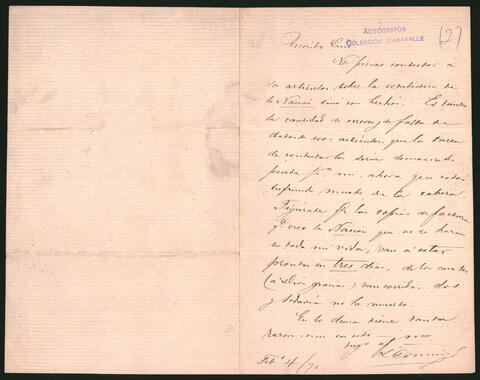 AUTÓGRAFOS
COLECCIÓN CASAVALLE
(2)
Querido Luis
No pienso contestar á
los artículos sobre la estadística de
la Nación sino con hechos. Es tanta
la cantidad de errores y de falta de
datos de esos artículos, que la tarea
de contestarlos seria demasiado
pesada pª mi, ahora que estoy
sufriendo mucho de la cabeza.
Figúrate qe las copias de facturas
qe creo la Nación que no se harán
en toda mi vida, van á estar
prontas en tres dias, de los cuales
(á Dios gracias) van corridos dos
y todavía no he muerto.
En lo demas tiene tanta
razon como en esto
tuyo af
Febº 4/70